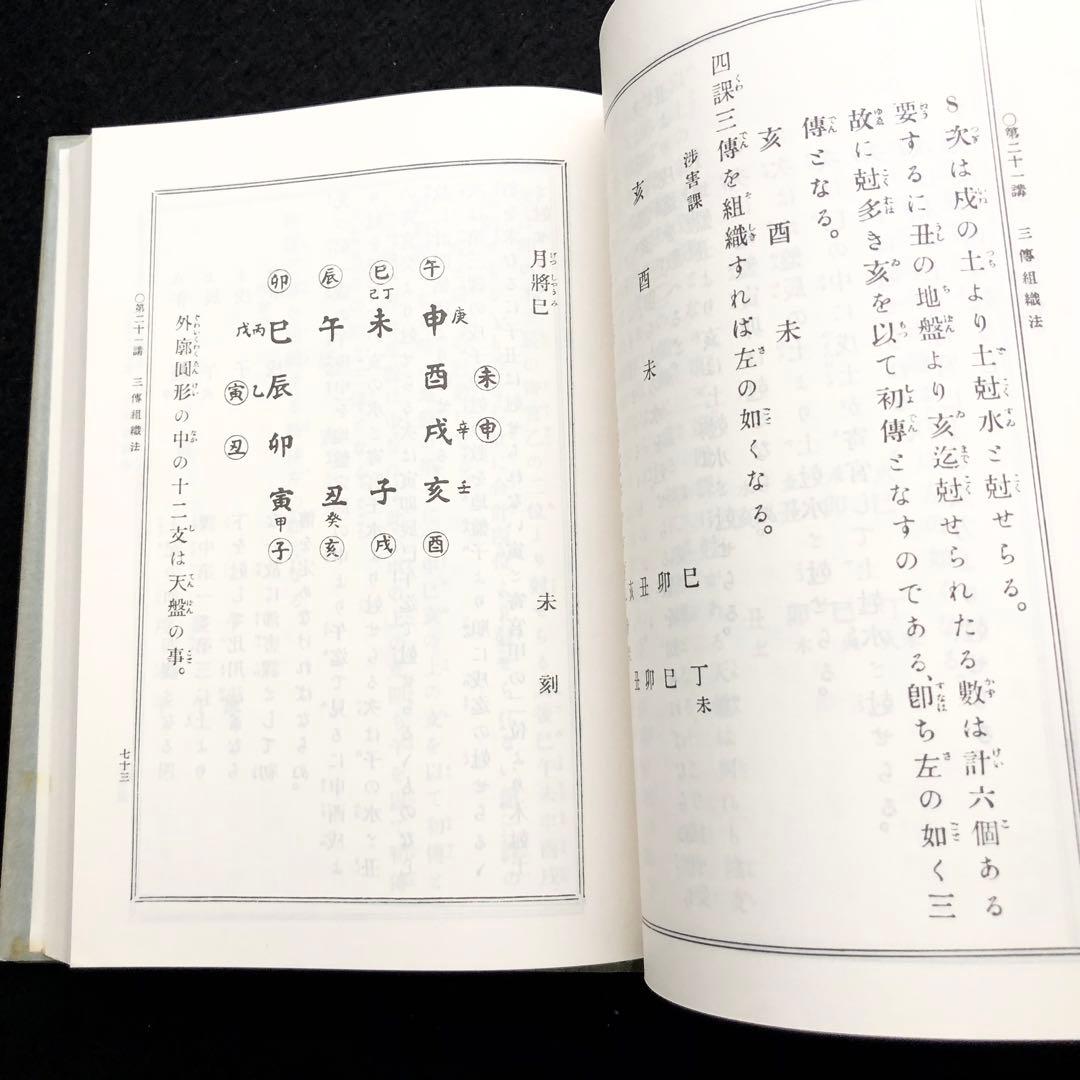 〇第二十一講 三傳組織法
8次は戍の土より土尅水と尅せらる。
要するに丑の地盤より亥迄尅せられたる數は計六個ある
故に尅多き亥を以て初傳となすのである、卽ち左の如く三
傳となる。
亥 酉 未
四課三傳を組織すれば左の如くなる。
涉害課
亥 酉 未
巳 丁未
卯 巳
丑 卯
亥 丑
月將巳 未刻
未 申
午 申 庚 酉 戍 辛 亥 壬 酉
巳 己丁 未 子 戍
辰 午 丑 癸 亥
卯 巳 辰 卯 寅 甲 子
戊丙 寅 乙 丑
外廓圓形の中の十二支は天盤の事。
〇第二十一講 三傳組織法
七十三